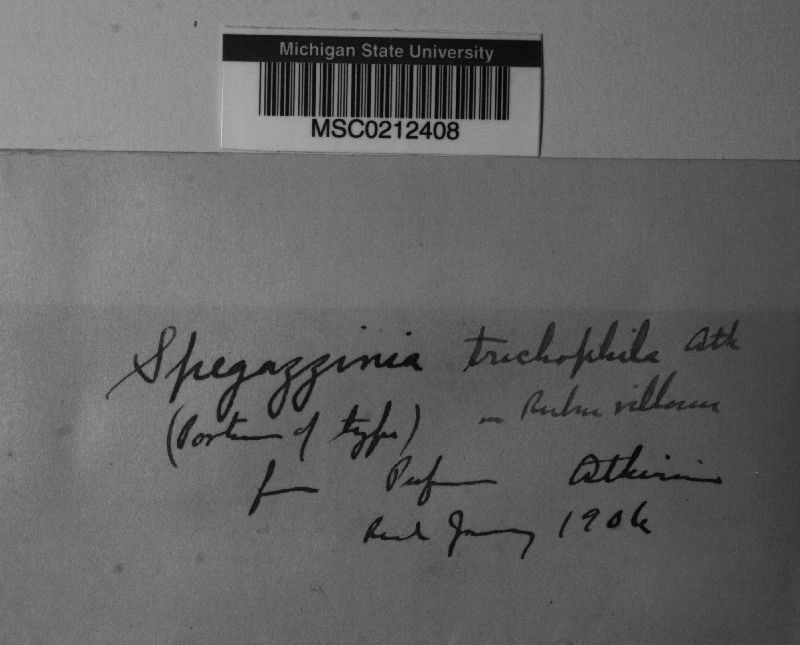 Michigan State University
MSC0212408
Spegazzinia trichophila Atk
(Portion of type) on Rubus villosus
from Professor Atkinson
Recd January 1906